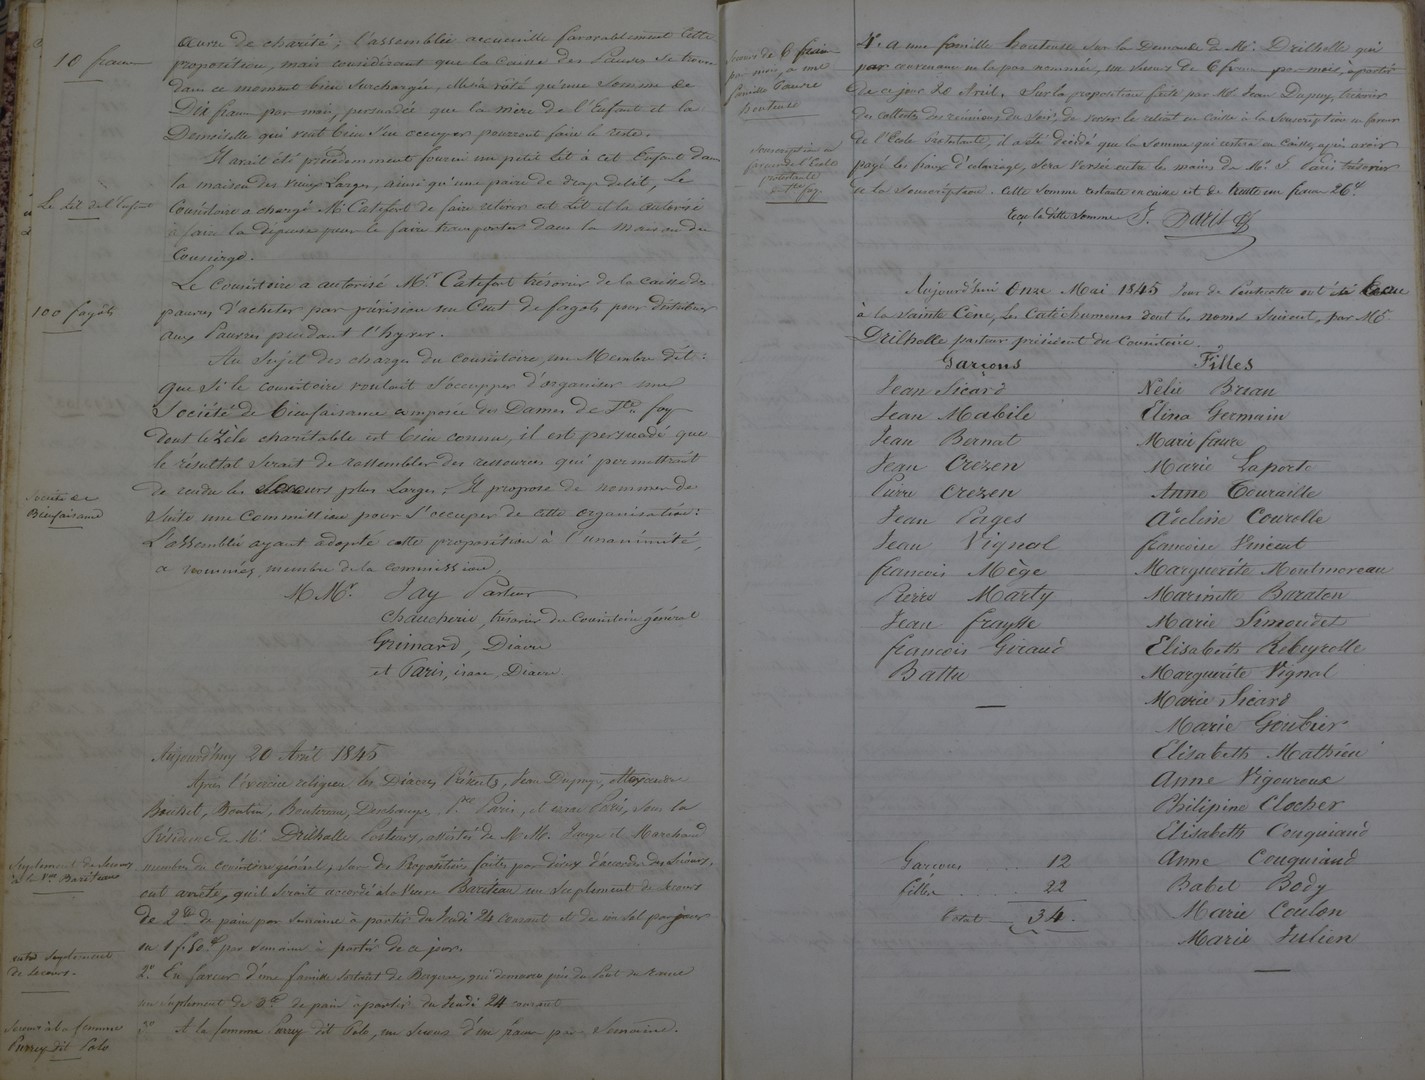 10 francs
œuvre de charité; l'assemblée accueille favorablement cette
proposition, mais considérant que la caisse des Pauvres se trouve
dans ce moment bien surchargée, elle arrêté qu'une somme de
Dix francs par mois, persuadée que la mère de l'Enfant et la
Demoiselle qui veut bien s'en occuper pourront faire le reste.
Il avait été précédemment fourni un petit Lit à cet Enfant dans
la maison des vieux Larges, ainsi qu'une paire de draps de lit, Le
Le lit de l'Enfant
Consistoire a chargé Mr Catefort de faire retirer cet Lit et la autorisé
à faire la dépense pour le faire transporter dans la maison du
Concierge.
Le Consistoire a autorisé Mr Catefort trésorier de la caisse des
100 fagots
pauvres d'acheter par prévision un Cent de fagots pour distribuer
aux Pauvres pendant l'hyver.
Au sujet des charges du consistoire, un Membre dit:
que si le consistoire voulait s'occupper d'organiser une
Société de bienfaisance composée des Dames de Ste foy
dont le zèle charitable est bien connu, il est persuadé que
le résultat serait de rassembler des ressources qui permettrait
de rendre les secours plus Larges. Il propose de nommer de
Société de
Bienfaisance
suite une Committion pour s'occuper de cette organisation:
L'assemblée ayant adopté cette proposition à l'unanimité,
a nommés, membre de la commission,
M Mrs Jay Pasteur
Chaucherie, trésorier du Consistoire général
Grimard, Diacre
et Paris, isaac Diacre
Aujourd'huy 20 Avril 1845
Après l'exercice religieux les Diacres Présents, Jean Dupuy, Alexandre
Bouket, Boutin, Boutereau, Paris, et isaac Paris, sous la
Présidence de Mr Drilholle Pasteurs, assistés de M Mr. Jauge et Marchand
Suplement de Secours
à la Vve Bariteau
membre du consistoire général, sur des Proposition faites par divers d'accorder des Secours,
ont arrêté, qu'il serait accordé à la Veuve Bariteau un Suplement de Secours
de 2 de pain par Semaine à partir du Jeudi 24 courant et de un sol par jour
ou 1f.50c par semaine à partir de ce jour.
autre Suplement
de Secours.
2° En faveur d'une famille sortant de Bergerac, qui demeure près du Pont de
un suplement de 3 de pain à partir du Jeudi 24 courant
Secours à la femme
Purrey dit Polo
3° A la femme Purrey dit Polo, un Secours d'un franc par Semaine.
Secours de 6 francs
par mois, à une
famille Pauvre
honteuse
4° a une famille honteuse sur la Demande de Mr. Drilholle qui
par convenance ne la pas nommée, un Secours de 6 francs par mois, à partir
de ce jour 20 Avril. Sur la proposition faite par Mr. Jean Dupuy, trésorier
des collectes des réunions du Soir, de verser le reliat en caisse à la Souscription en faveur
Souscription en
faveur de l'Ecole
protestante
Ste foy
de l'Ecole Protestante, il a été décidé que la Somme qui restera en Caisse, après avoir
payé les fraix d'éclairage, sera versée entre les mains de Mr. J. Paris trésorier
de la Souscription. Cette Somme restante en caisse est de trente un francs 26c.
reçu la ditte somme J. Paris
Aujourd'hui Onze Mai 1845 Jour de Pentecote ont été Reçue
à la Sainte Cène, les Catéchumenes dont les noms suivent, par Mr.
Drilholle pasteur président du Consistoire.
Garçons
Jean Sicard
Jean Mabile
Jean Bernat
Jean Crezen
Pierre Crezen
Jean Pages
Jean Vignal
francois Mège
Pierre Marty
Jean fraysse
francois Giraud
Battu
Garçons 12
filles 22
total 34.
Filles
Nelie Brian
Elina Germain
Marie faure
Marie Laporte
Anne Touraille
Adeline Courolle
francoise Vincent
Marguerite Montmoreau
Marinette Baraton
Marie Simondet
Elisabeth Rebeyrolle
Marguerite Vignal
Marie Sicard
Marie Goubier
Elisabeth Mathieu
Anne Vigouroux
Philipine Clocher
Elisabeth Couquiaud
Anne Couquiaud
Babet Body
Marie Coulon
Marie Julien